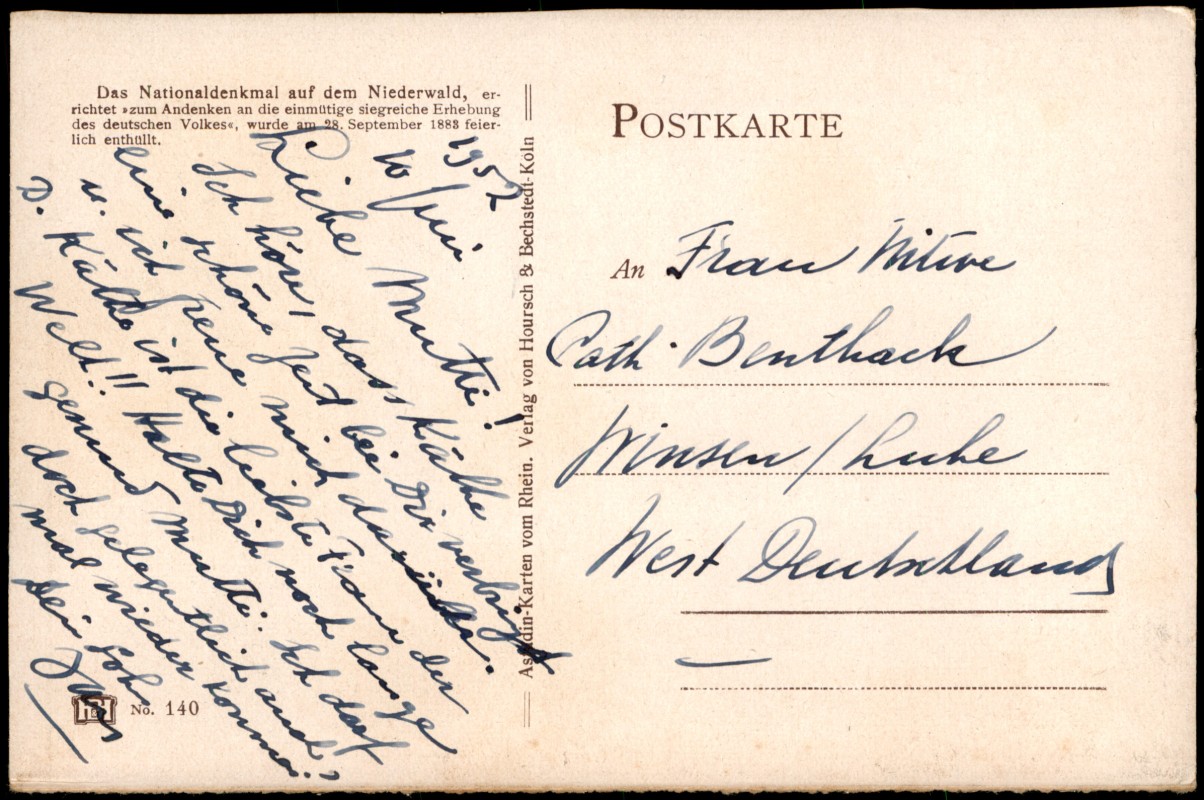 Das Nationaldenkmal auf dem Niederwald, er-
richtet »zum Andenken an die einmütige siegreiche Erhebung
des deutschen Volkes«, wurde am 28. September 1883 feier-
lich enthüllt.
10 Juni 1952
Liebe Mutti!
Ich höre, dass Käthe
eine schöne Zeit bei Dir verbringt
u. ich freue mich darüber.
D. Käthe ist die liebste Frau der
Welt!! Halte Dich noch lange
gesund Mutti. Ich darf
doch gelegentlich auch
mal wieder kommen?
Dein Sohn
Hans
No. 140
Assidin-Karten vom Rhein. Verlag von Hoursch & Bechstedt-Köln
POSTKARTE
An Frau Witwe
Cath. Benthack
Winsen / Luhe
West Deutschland